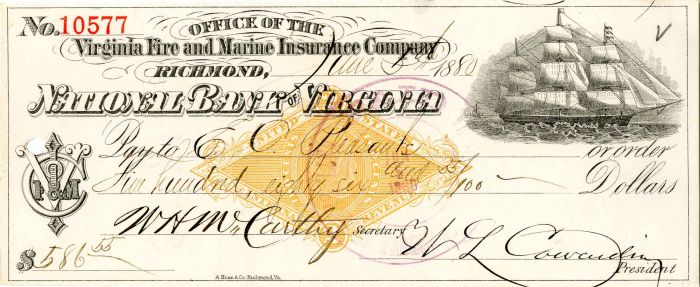 No. 10577
OFFICE OF THE
Virginia Fire and Marine Insurance Company
RICHMOND, June 1880
NATIONAL BANK OF VIRGINIA
Pay to E. C. Pleasants or order
Five hundred eighty six and 55/100 Dollars
W H McCarthy Secretary W L Cowardin President
$586 55
A. Hoen & Co. Richmond, Va.